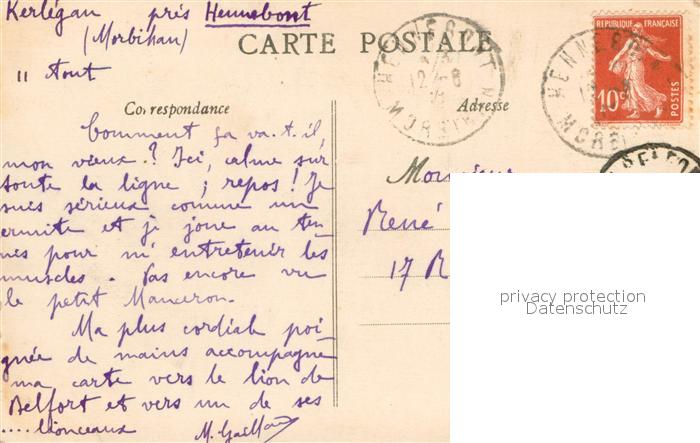 Kerlégan près Hennebont
(Morbihan)
11 Aout
CARTE POSTALE
Correspondance
Adresse
RÉPUBLIQUE FRANÇAISE
10c
POSTES
HENNEBONT
12-8
MORBIHAN
HENNEB
MORBI
BELFO
Comment ça va-t-il,
mon vieux? Ici, calme sur
toute la ligne; repos! Je
suis sérieux comme un
ermite et je joue au ten-
nis pour m'entretenir les
muscles. Pas encore vu
le petit Manceron.
Ma plus cordiale poi-
gnée de mains accompagne
ma carte vers le lion de
Belfort et vers un de ses
.... lionceaux
M. Gaillard
Monsieur
René
17 R
privacy protection
Datenschutz